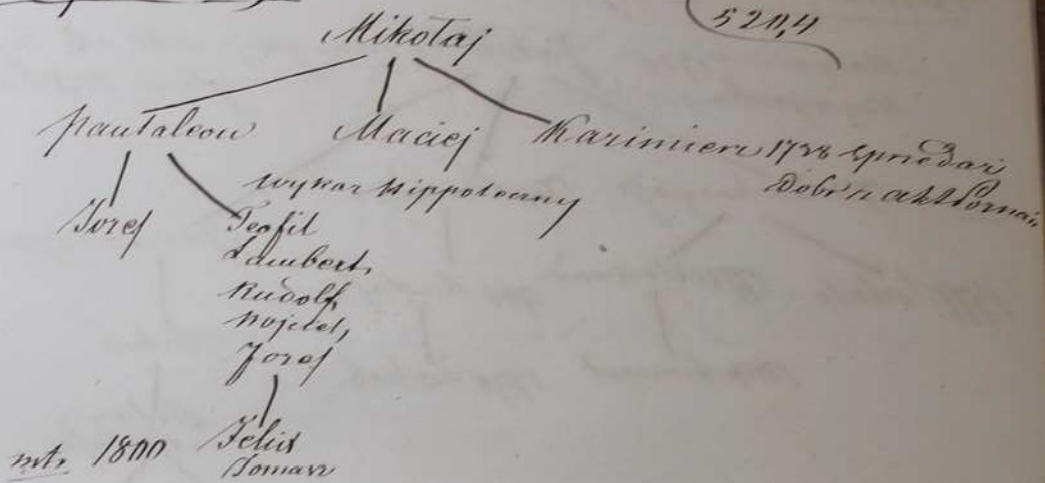 5211,4
Mikołaj
Pantaleon Maciej Kazimierz 1738 sprzedaż
Dóbr z akt Poznań
wykaz hippoteczny
Józef Teofil
Lambert,
Rudolf,
Wojciech,
Józef
Felix
mtr 1800 Tomasz